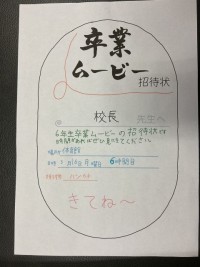 卒業
ムービー
招待状
校長 先生へ
6年生卒業ムービーの招待状です
時間があればぜひ見てください
場所 体育館
月曜日 6時間目
きてね〜